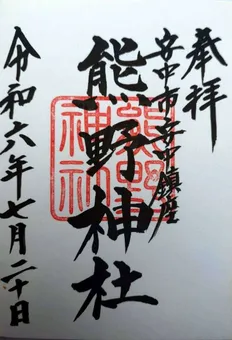 奉拝
安中市安中鎮座
熊野神社
熊野神社
令和六年七月二十日